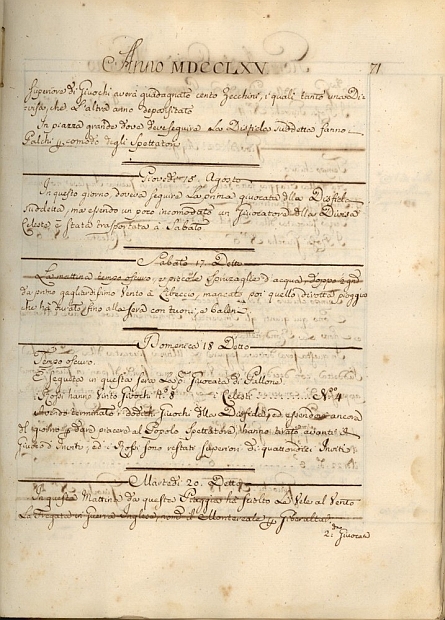 Anno MDCCLXV
71
superiore di Giuochi averà guadagnato cento Zecchini, i quali tanto
che l'altra anno depositato
In piazza grande dove deve seguire La Disfida suddetta fanno
Palchi p comodo degli Spettatori
Giovedì 15. Agosto
In questo giorno, doveva seguire La prima giuocata della Disfida
suddetta, ma essendo un poco incomodato un Giuocatore della Divisa
Celeste è stata trasportata à Sabato
Sabato 17. Detto
La mattina tempo oscuro, e piccole spruzaglie d'acqua, doppo
da primo gagliardissimo Vento à Libeccio, mancato poi quello dirotta pioggia
che hà durato fino alla sera con tuoni, e baleni
Domenica 18 Detto
Tempo oscuro.
È seguita in questa sera La Giuocata di Pallone.
Rossi hanno Vinto Giuochi N. 8 Celesti N. 4
terminato i Giuochi della Disfida, ed essendo ancora
giorno, p dare piacere al Popolo Spettatore, hanno tirato avanti
Giuochi Inviti, ed i Rossi sono restati superiori di quattordici Inviti
Martedì 20. Detto
In questa Mattina da questa Piaggia hà sciolto Le Vele al Vento
La Fregata in Guerra Inglese, nom. il Montereale p Gibralter
2. Giuocata